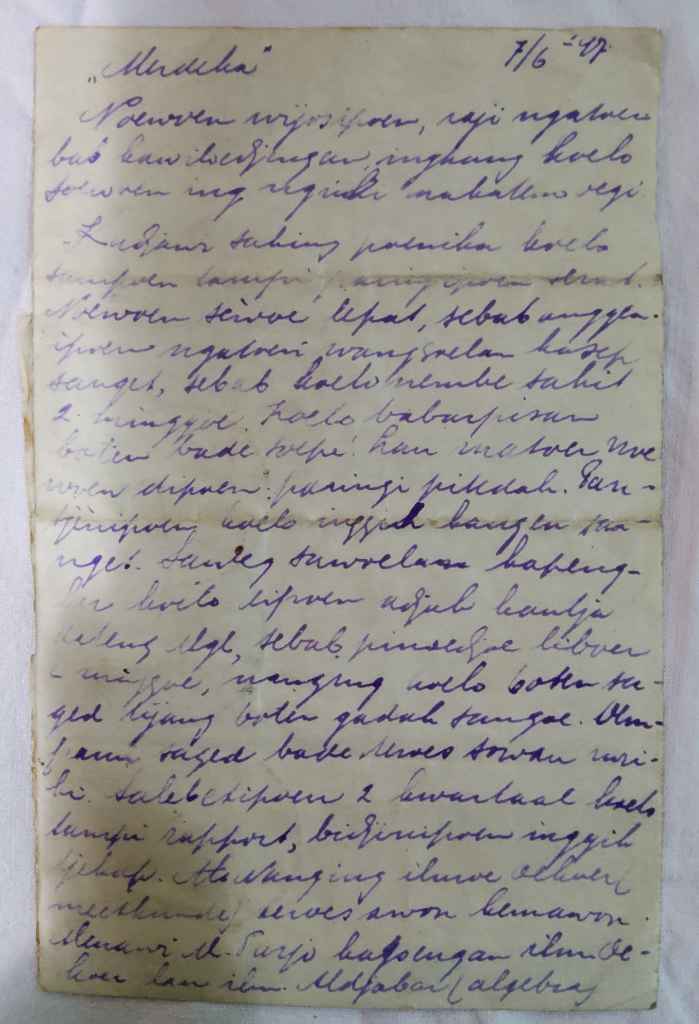 „Merdeka“ 7/6-'47.
Noewoen wijosipoen, roji ngatoeri
bab kawiloedjengan, ingkang koelo
soewoen ing ngriki
Kadjawi saking poenika koelo
sampoen tampi paringipoen serat.
Noewoen sewoe lepat, sebab anggen-
ipoen ngatoeri wangsoelan kasep
sanget, sebab koelo nembe sakit
2 minggoe. Koelo babarpisan
boten bade soepe. Lan matoer noe
woen dipoen paringi pitedah. Pan-
tjenipoen koelo inggih kangen sa-
nget. Saweg samoelan kapeng-
ker koelo dipoen adjak kantja
dateng sebab pinoedjoe liboer
minggoe, nanging koelo boten sa-
ged tijang boten gadah sangoe. Oem-
pami saged bade teroes sowan mri-
ki. Salebetipoen 2 kwartaal koelo
tampi rapport, bidjinipoen inggih
tjekap. Nanging ilmoe oekoer (
meetkunde) teroes awon kemawon.
Menawi M. Parjo kagoengan ilm. Oe-
koer lan ilm. Aldjabar (algebra)